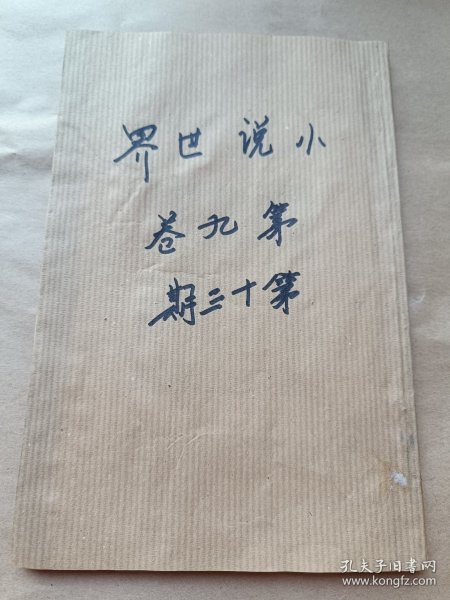 小说世界
第九卷
第十三期
孔夫子旧书网
www.kongfz.com